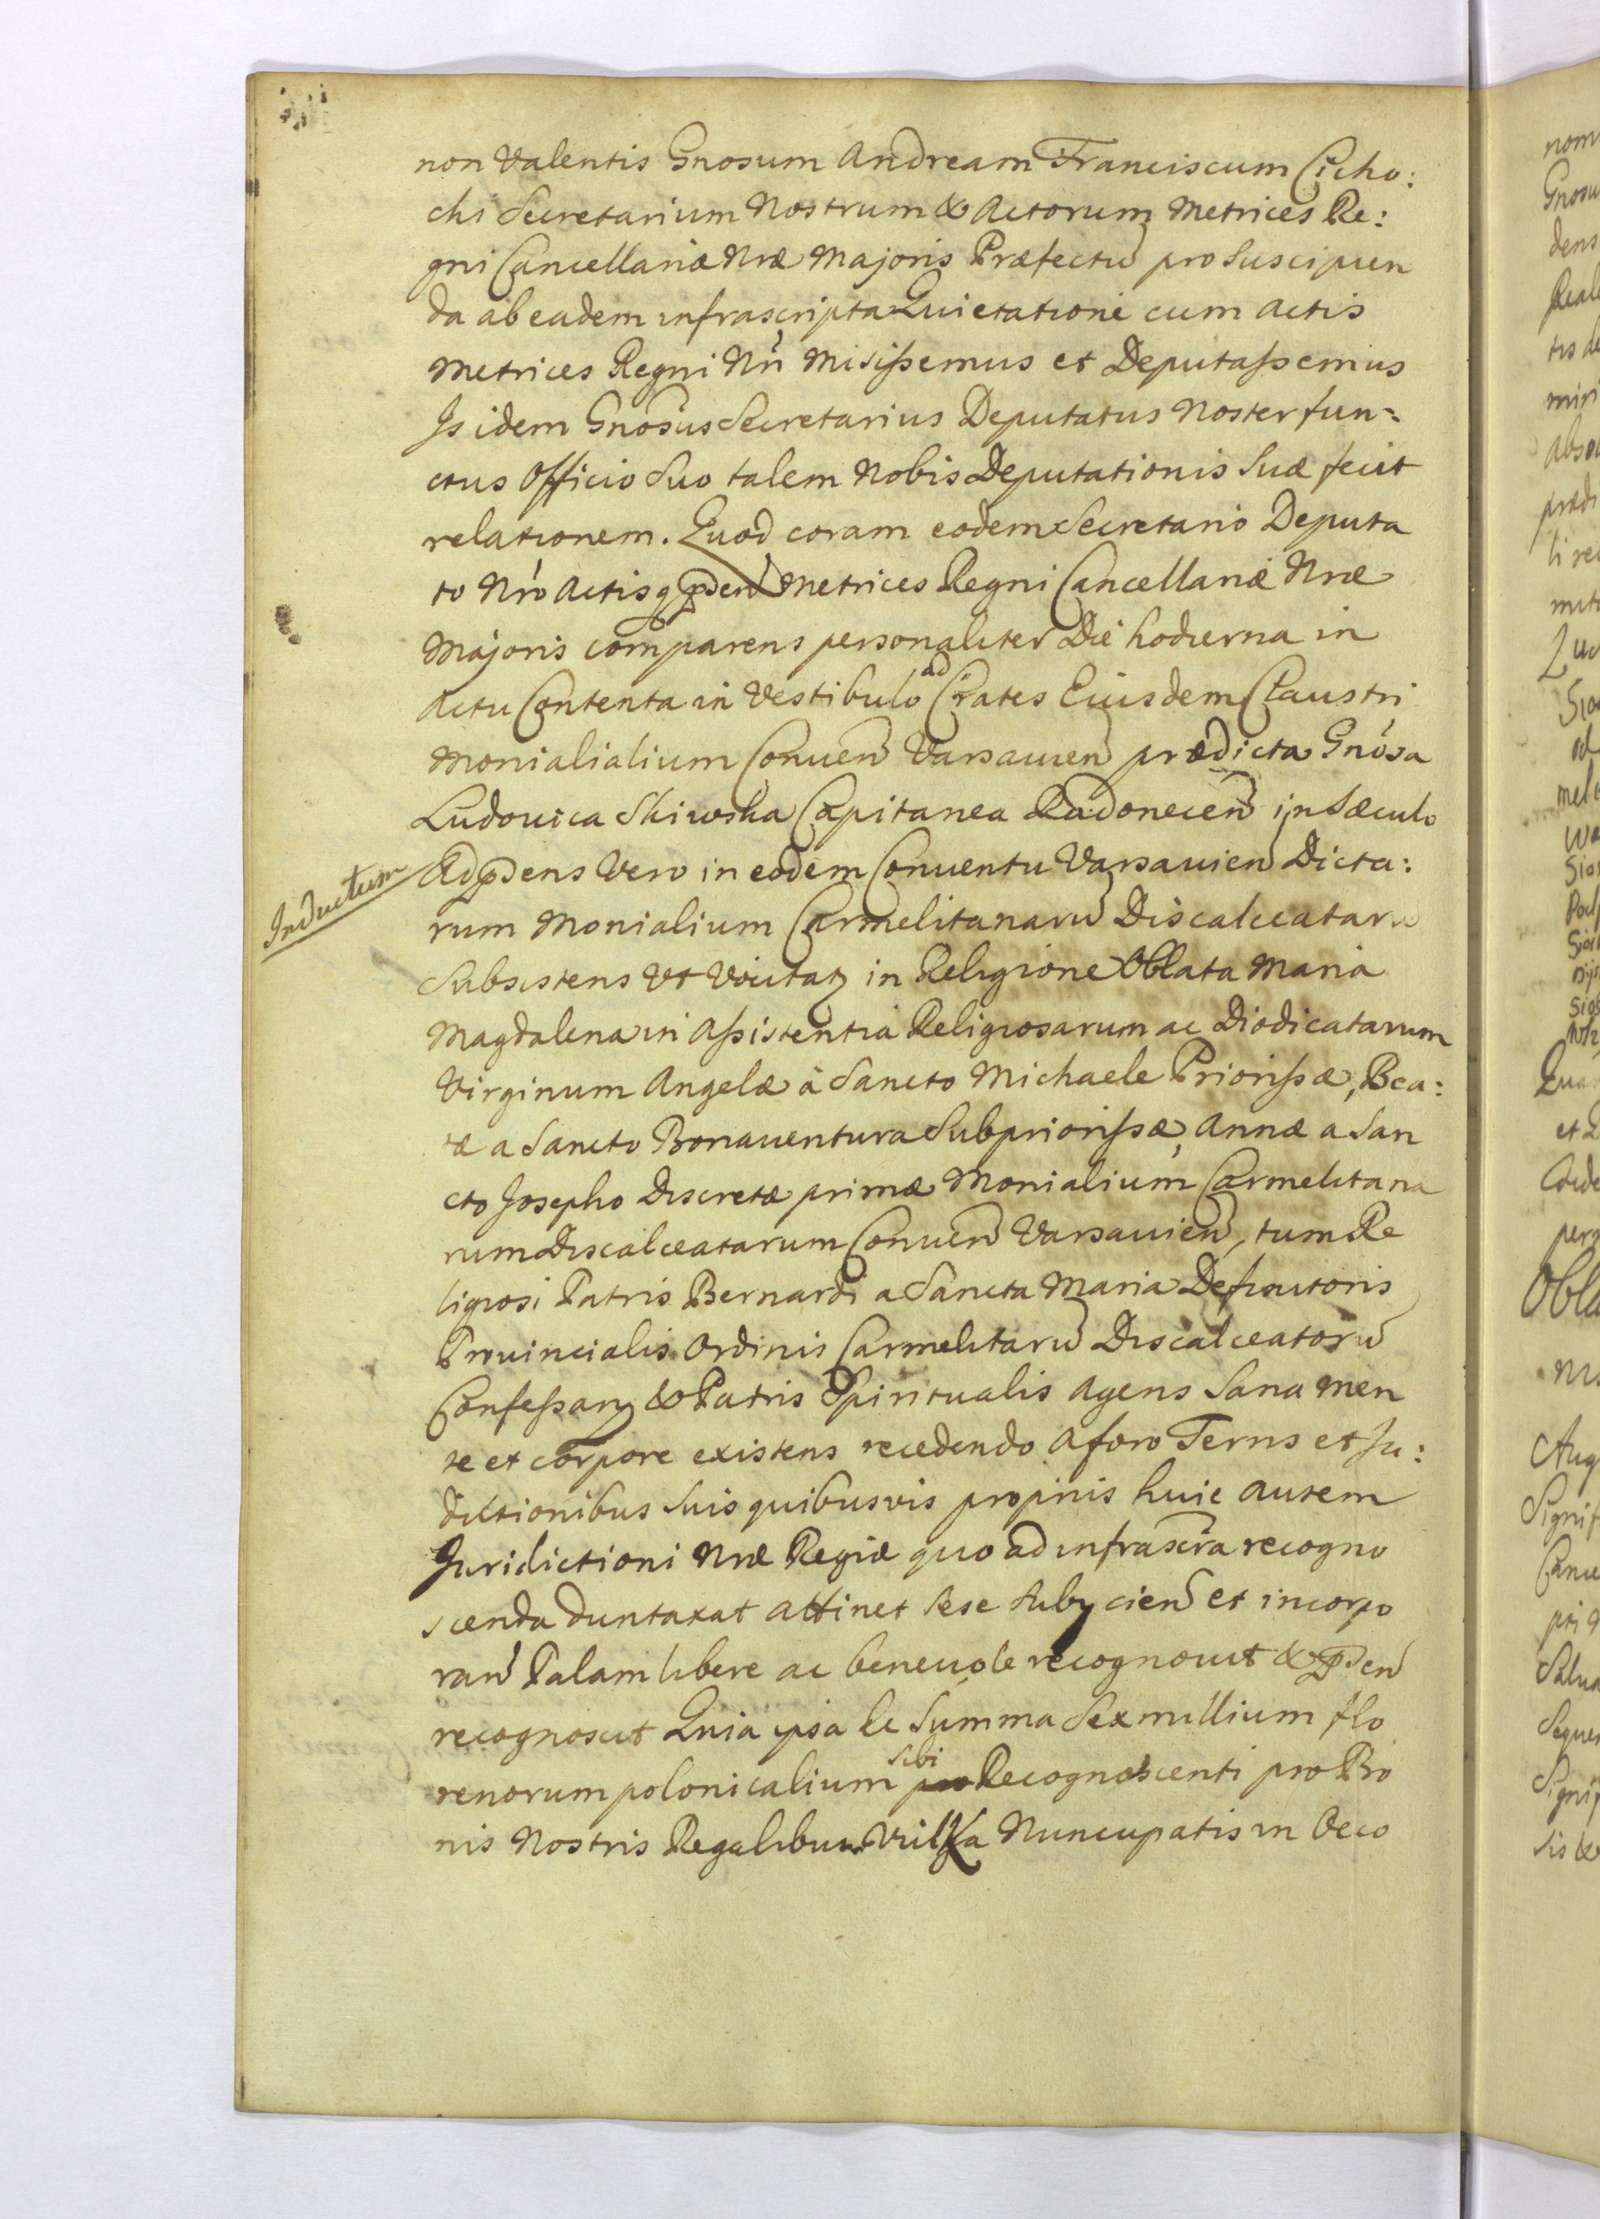 non Valentis Gnosum Andream Franciscum Cicho:
cki Secretarium Nostrum & Actorum Metrices Re:
gni Cancellariæ Nræ Majoris Præfectũ pro suscipien
da ab eadem infrascripta Quietatione cum Actis
Metrices Regni Nri Misissemus et Deputassemus
Is idem Gnosus Secretarius Deputatus Noster fun=
ctus Officio Suo talem Nobis Deputationis Suæ fecit
relationem. Quod coram eodem Secretario Deputa
to Nro Actisq Metrices Regni Cancellariæ Nræ
Majoris comparens personaliter Die hodierna in
Actu Contenta in Vestibulo ad Crates Eiusdem Claustri
Monialialium Conuen Varsauien prædicta Gnosa
Ludouica Skiwska Capitanea Radonecen in Sæculo
Inductum
Ad pdens Vero in eodem Conuentu Varsauien Dicta:
rum Monialium Carmelitanarũ Discalceatarũ
Subsistens Vt in Religione Oblata Maria
Magdalena in Assistentia Religiosarum ac Diodicatarum
Virginum Angelæ à Sancto Michaele Priorissæ, Bea:
tæ a Sancto Bonauentura Subpriorissæ, Annæ a San
cto Josepho Discretæ primæ Monialium Carmelitana
rum Discalceatarum Conuen Varsauien, tum Re
ligiosi Patris Bernardi a Sancta Maria Definitoris
Prouincialis Ordinis Carmelitarũ Discalceatorũ
Confessarij & Patris Spiritualis Agens Sana men
te et corpore existens recedendo a foro Terris et Ju:
dictionibus Suis quibusvis proprijs huic autem
Juridictioni Nræ Regiæ quo ad infrascra recogno
scenda duntaxat attinet sese subijcien et incorpo
ran Palam libere ac beneuole recognouit & pden
recognoscit Quia ipsa de Summa Sex millium flo
renorum polonicalium sibi Recognoscenti pro Bo
nis Nostris Regalibus Nuncupatis in Oeco